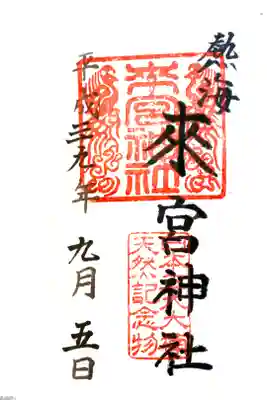 熱海
來宮神社
來宮神社
天然記念物
平成廿九年
九月五日